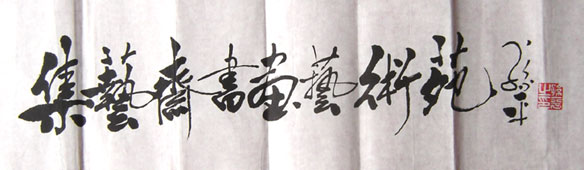 集藝齋書画藝術苑